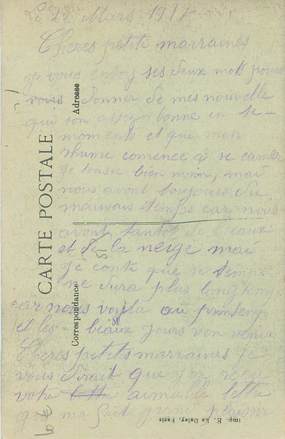 le 22 Mars 1917
Cheres petite marraines
je vous envoy ses deux mott pour
vous donner de mes nouvelle
qui son assez bonne en se
moments et que mon
rhume comence a se
je tousse bien moin, mai
nous avont toujours du
mauvais temps car nous
avont tantot de l'eaux
et de la neige mais
je conte que se temps
ne dura plus longtemp
car nous voila au printemp
et les beaux jours von venir
Cheres petits marraines je
vous dirait que j'ai reçu
votre aimable lettre
qui ma fait grand plaisir
CARTE POSTALE
Correspondance
Adresse
Imp. E. Le Deley, Paris